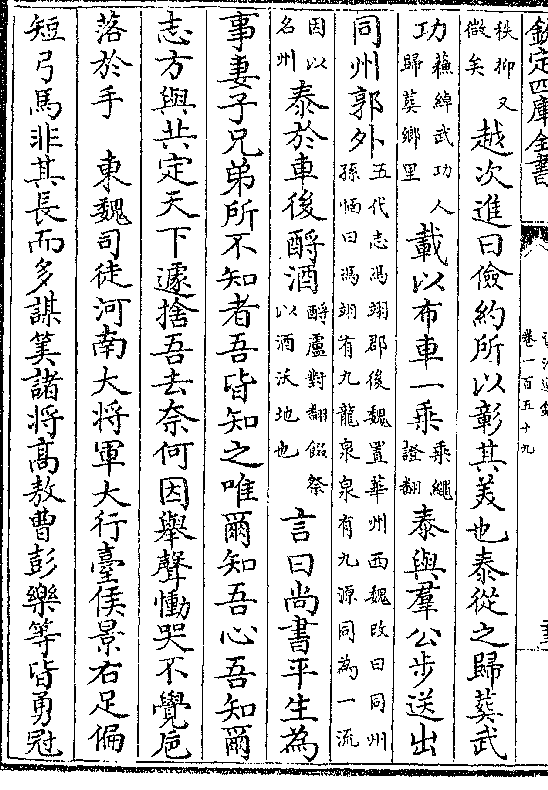 欽定四庫全書
卷一百五十九
秩抑又
儆矣
越次進曰儉約所以彰其美也泰從之歸葬武
功
蘇綽武功人
歸葬鄉里
載以布車一乘
乘繩
證翻
泰與羣公步送出
同州郭外
五代志馮翊郡後魏置華州西魏改曰同州
孫愐曰馮翊有九龍泉泉有九源同為一流
因以
名州
泰於車後酹酒
酹盧對翻餟祭
以酒沃地也
言曰尚書平生為
事妻子兄弟所不知者吾皆知之唯爾知吾心吾知爾
志方與共定天下遽捨吾去奈何因舉聲慟哭不覺巵
落於手 東魏司徒河南大將軍大行臺侯景右足偏
短弓馬非其長而多謀筭諸將高敖曹彭樂等皆勇冠